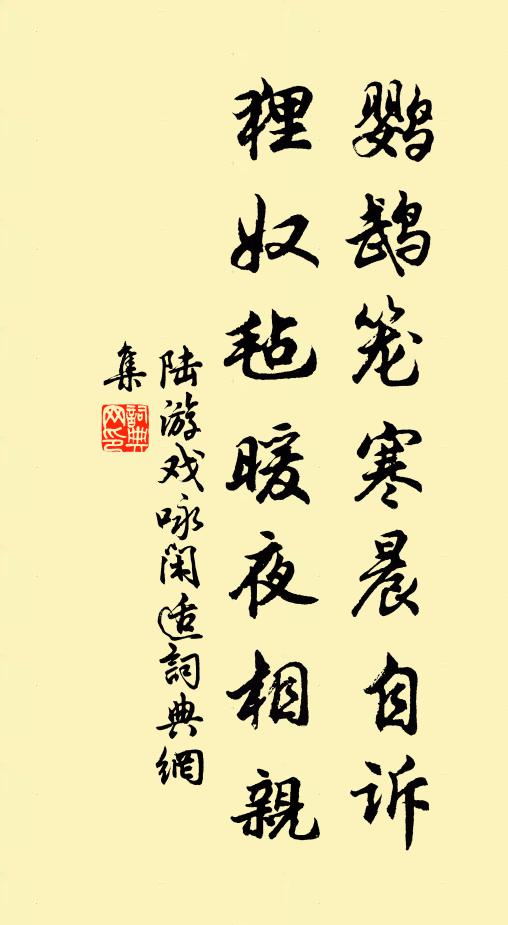 鹦鹉笼寒晨自诉
狸奴毡暖夜相親
陆游戏咏闲适詞典網
集
詞典
网印